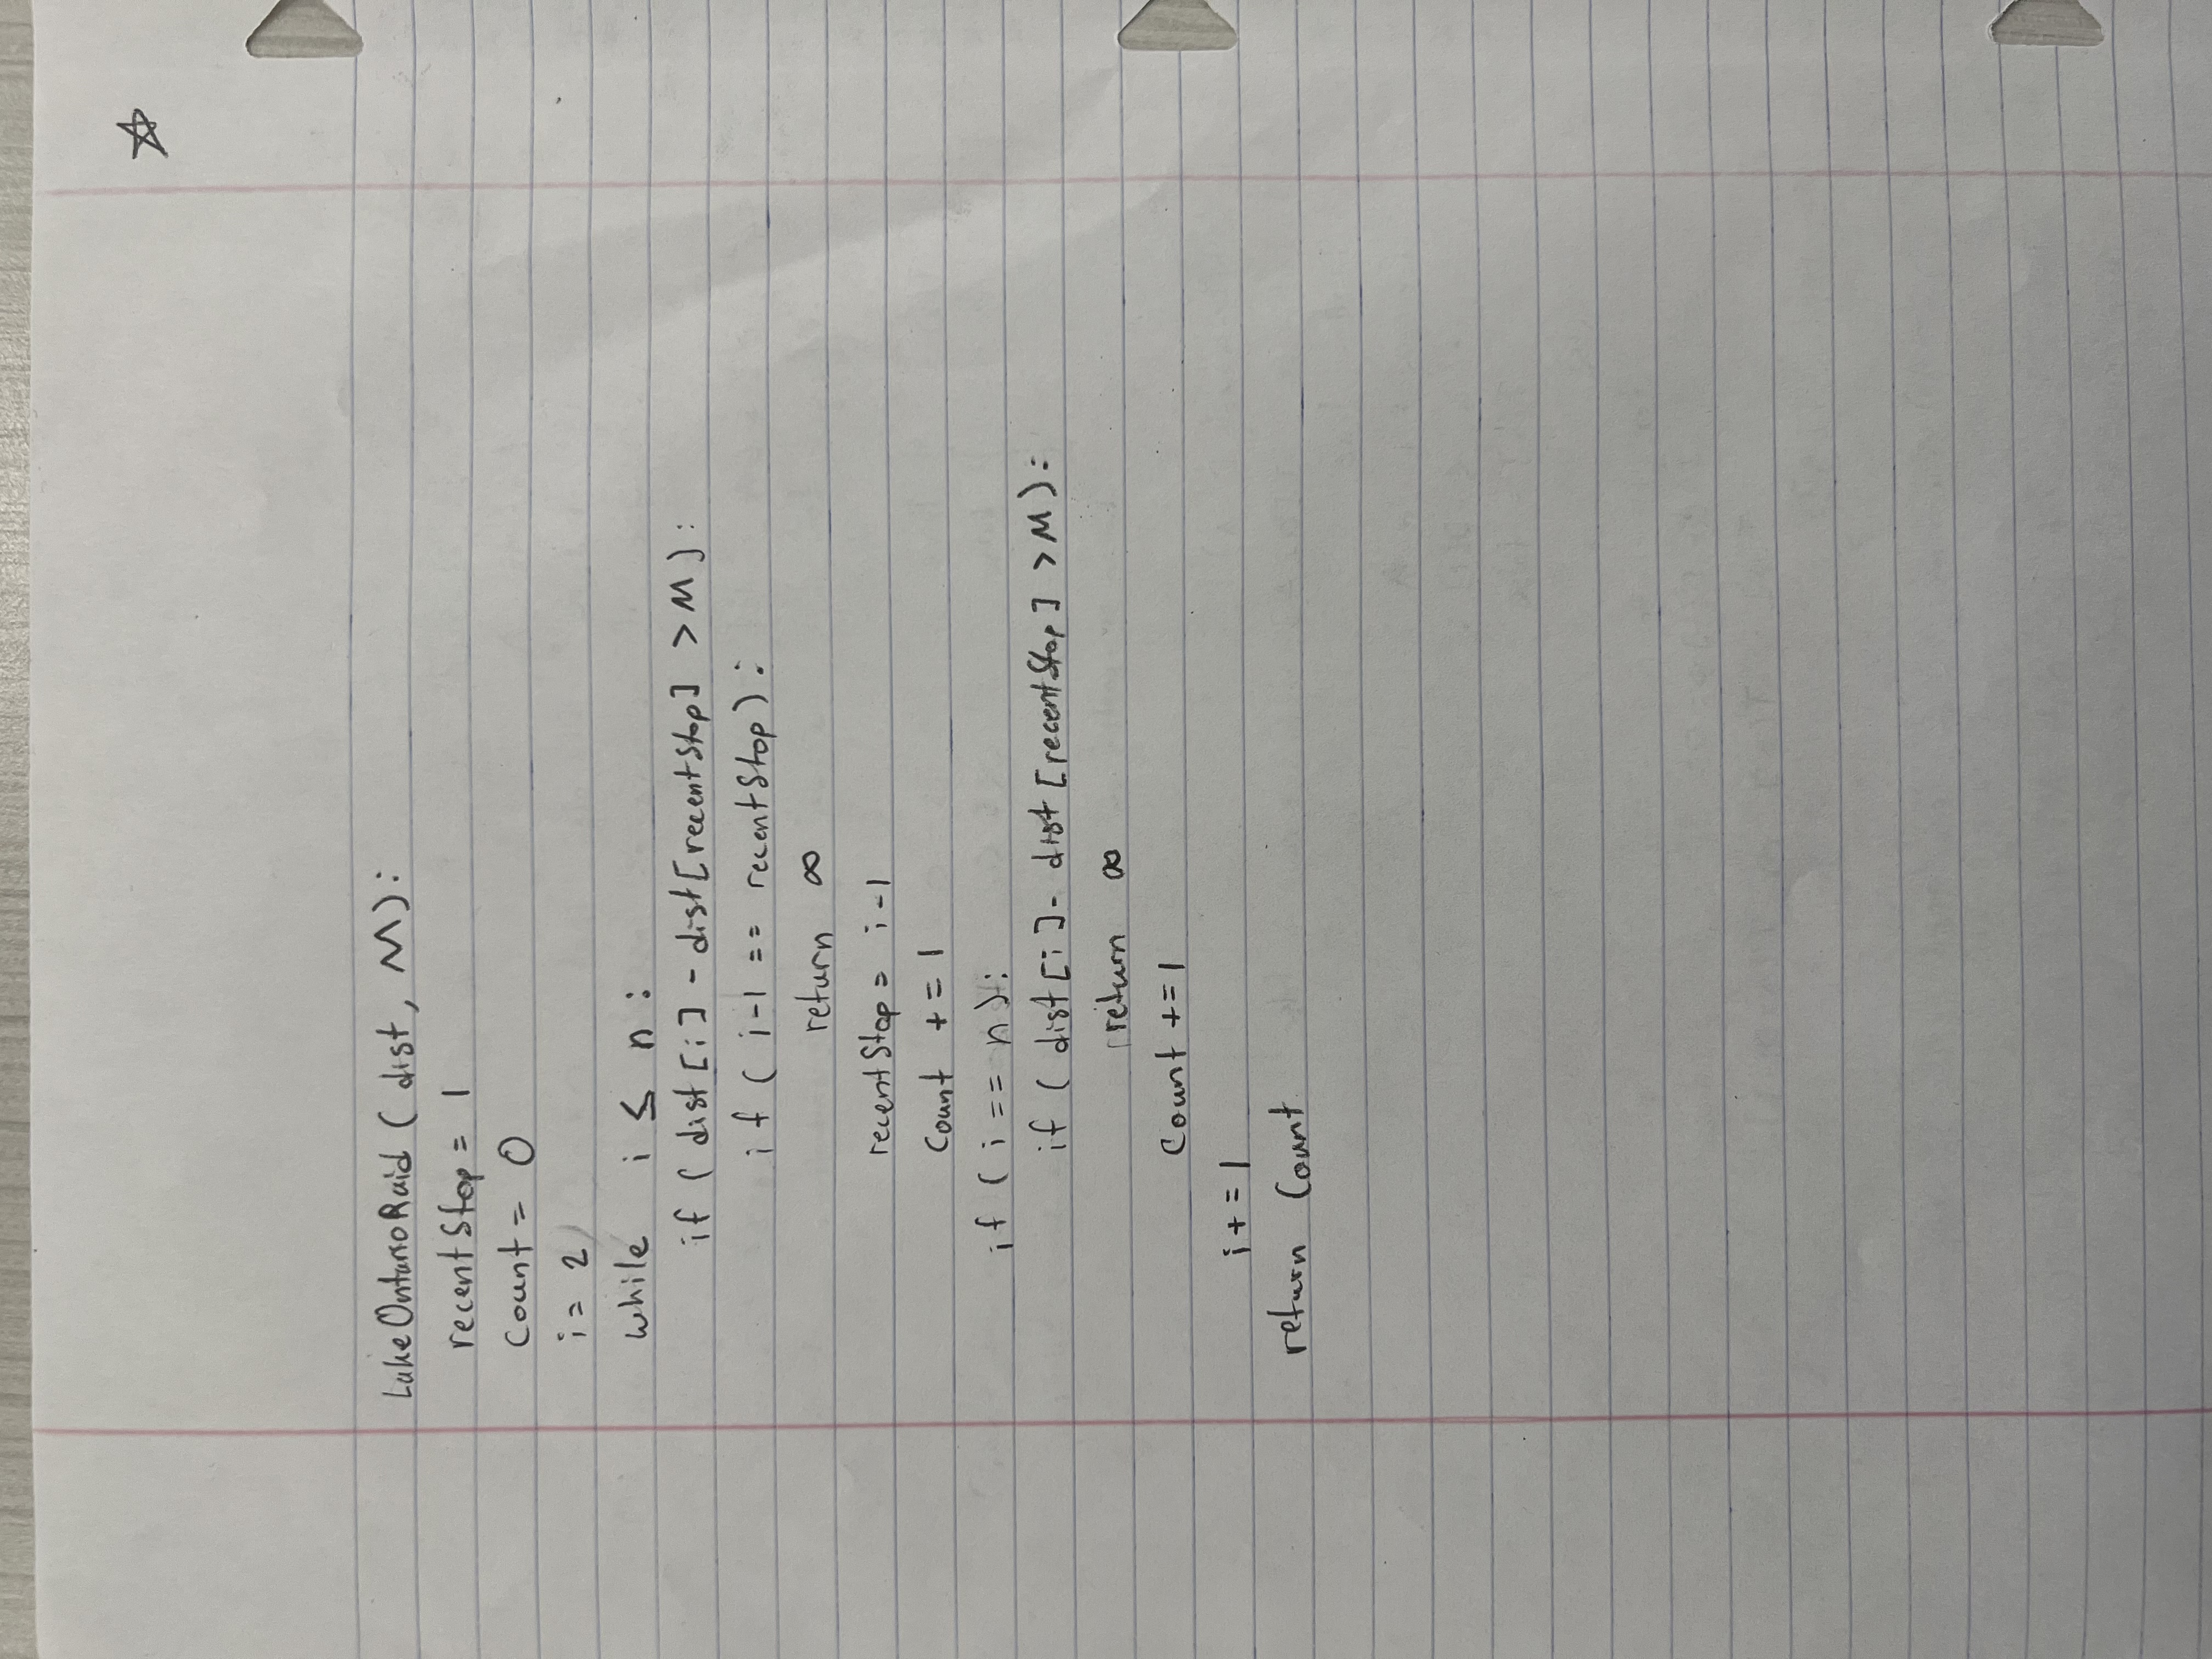 LakeOntarioRaid ( dist, M):
recentStop = 1
Count = 0
i = 2
while i ≤ n :
if ( dist [ i ] - dist [ recentStop ] > M ) :
if ( i-1 == recentStop ) :
return ∞
recentStop = i-1
Count += 1
if ( i == n ) :
if ( dist [ i ] - dist [ recentStop ] > M ) :
return ∞
Count += 1
i += 1
return Count